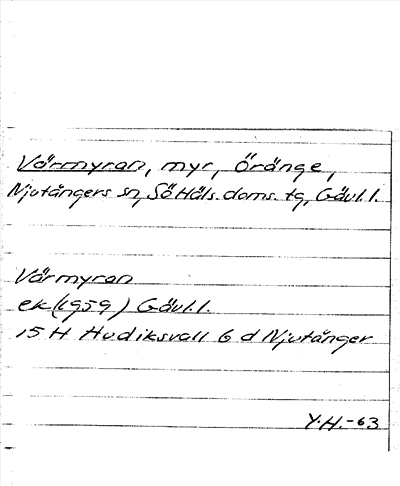 Vårmyran, myr, Öränge,
Njutångers sn, SöHäls. doms. tg, Gävl.l.
Vårmyran
ek (1959) Gävl.l.
15 H Hudiksvall 6 d Njutånger
Y.H.-63